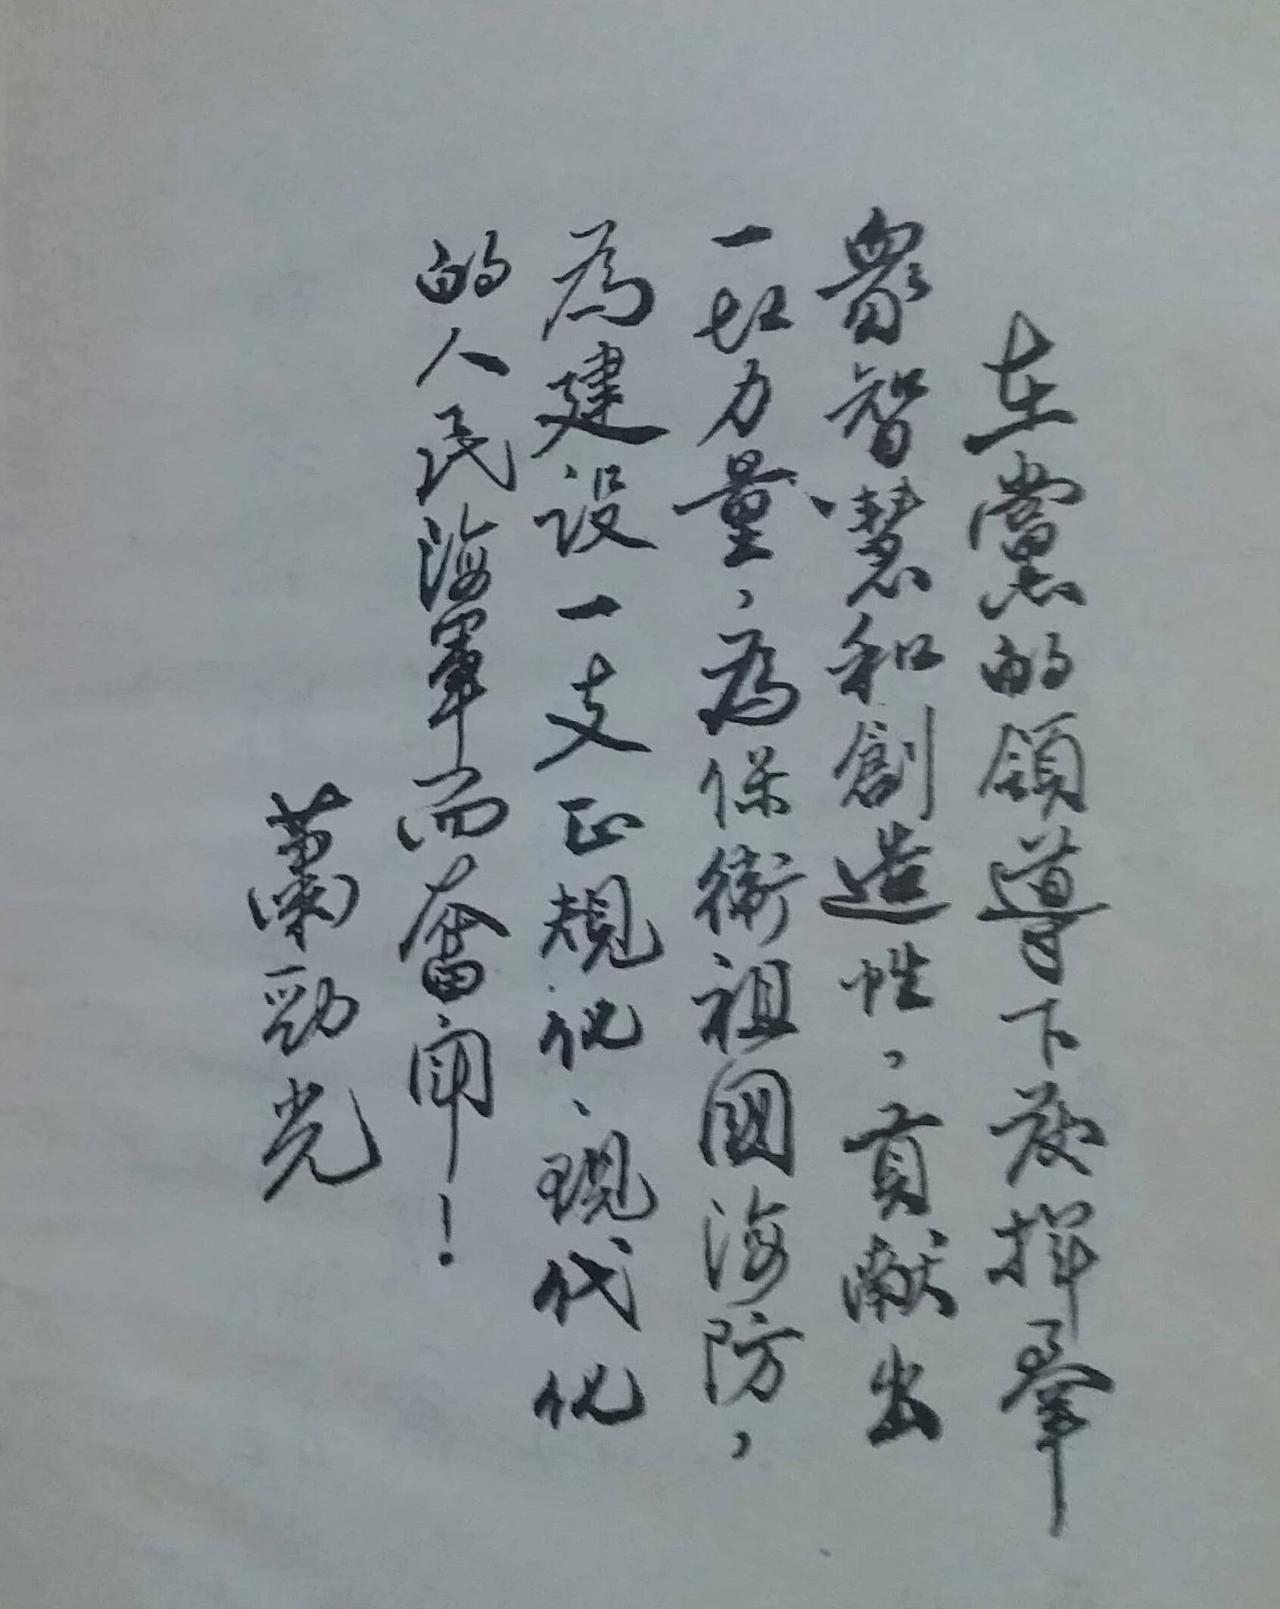 在黨的領導下发揮羣
眾智慧和創造性，貢献出
一切力量，為保衛祖國海防，
為建设一支正規化、現代化
的人民海軍而奮闘！
蕭勁光